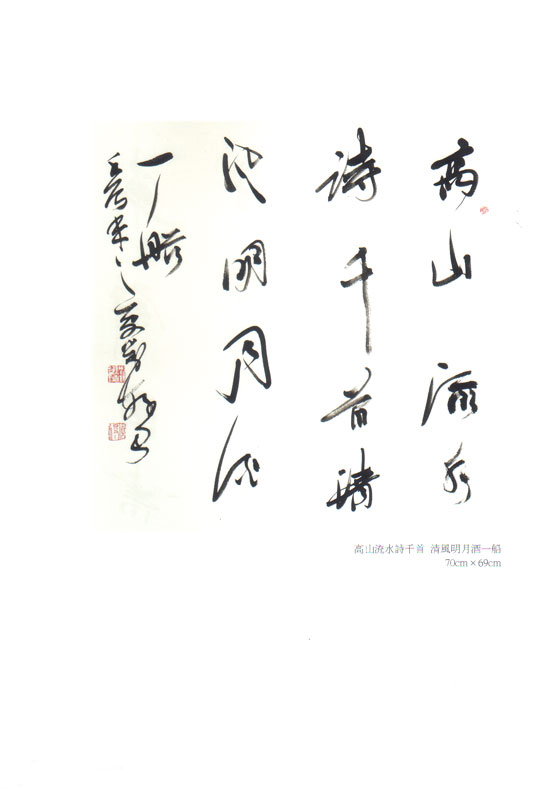 高山流水
詩千首清
風明月酒
一船
高山流水詩千首 清風明月酒一船
70cm × 69cm